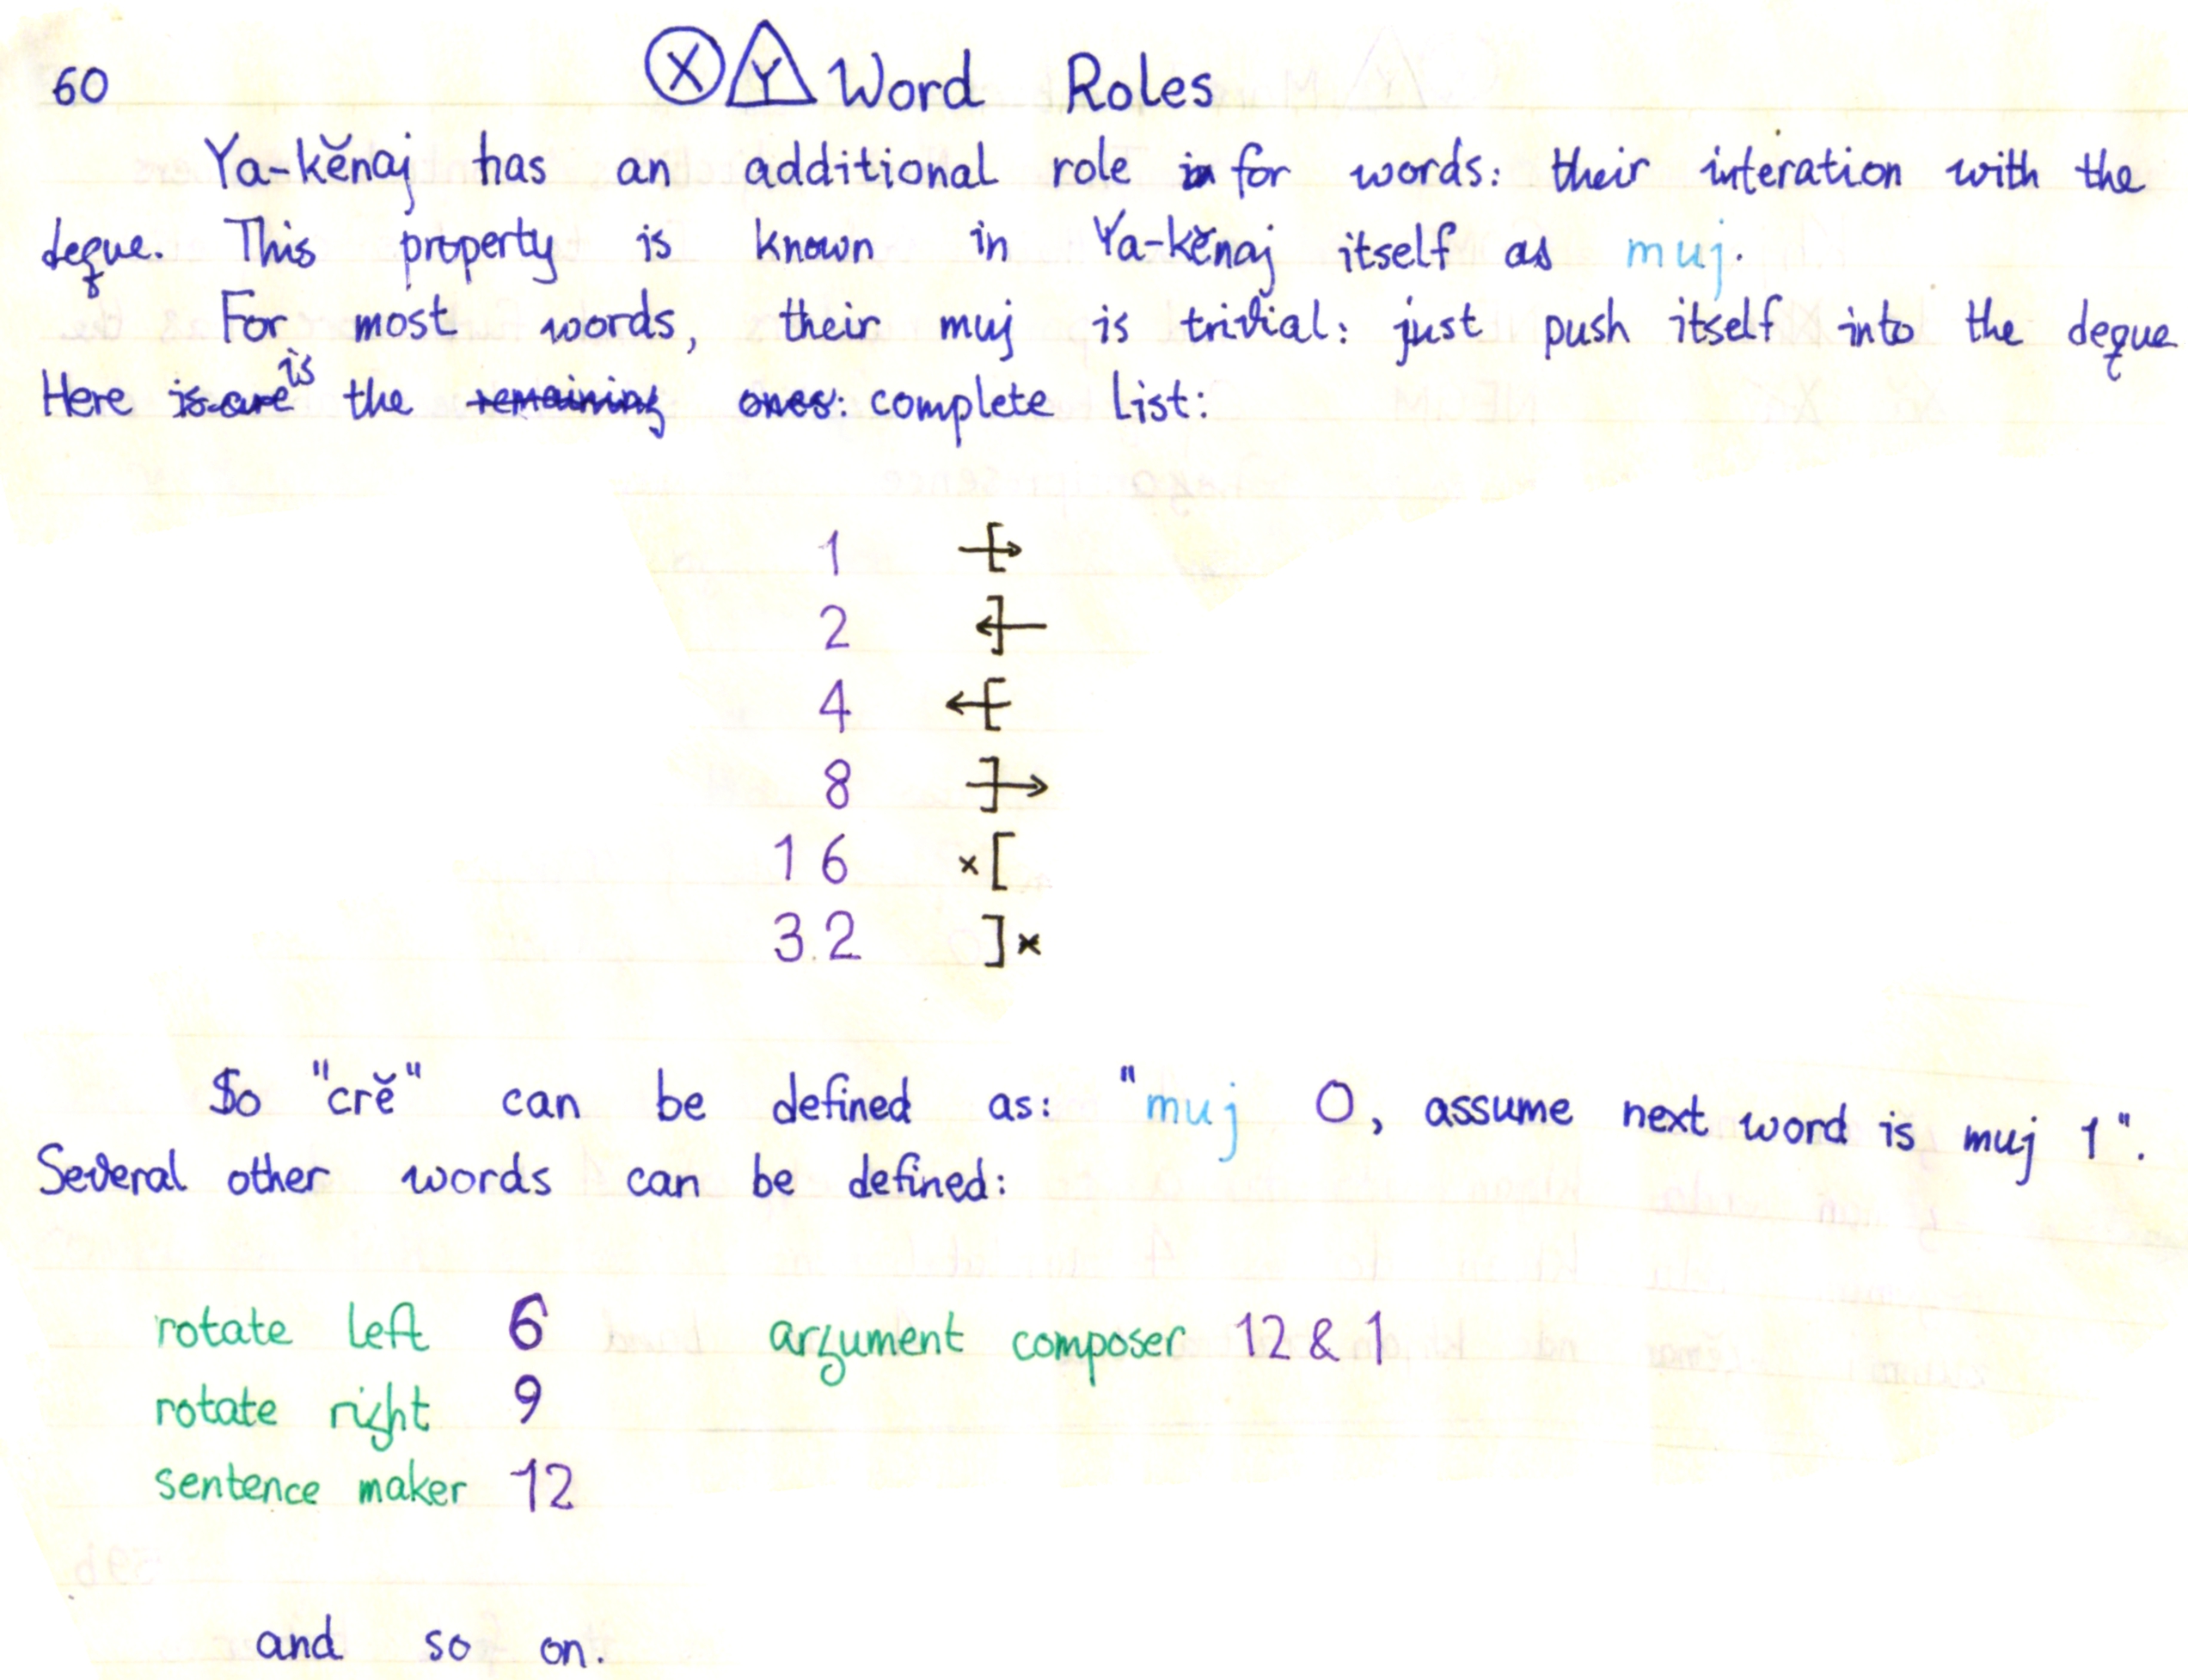 60 X Y Word Roles
Ya-kĕnaj has an additional role in for words: their interation with the
deque. This property is known in Ya-kĕnaj itself as muj.
For most words, their muj is trivial: just push itself into the deque
Here is are is the remaining ones: complete list:
1
2
4
8
16 ×[
32 ]×
So "crĕ" can be defined as: "muj 0, assume next word is muj 1".
Several other words can be defined:
rotate left 6 argument composer 12 & 1
rotate right 9
sentence maker 12
and so on.